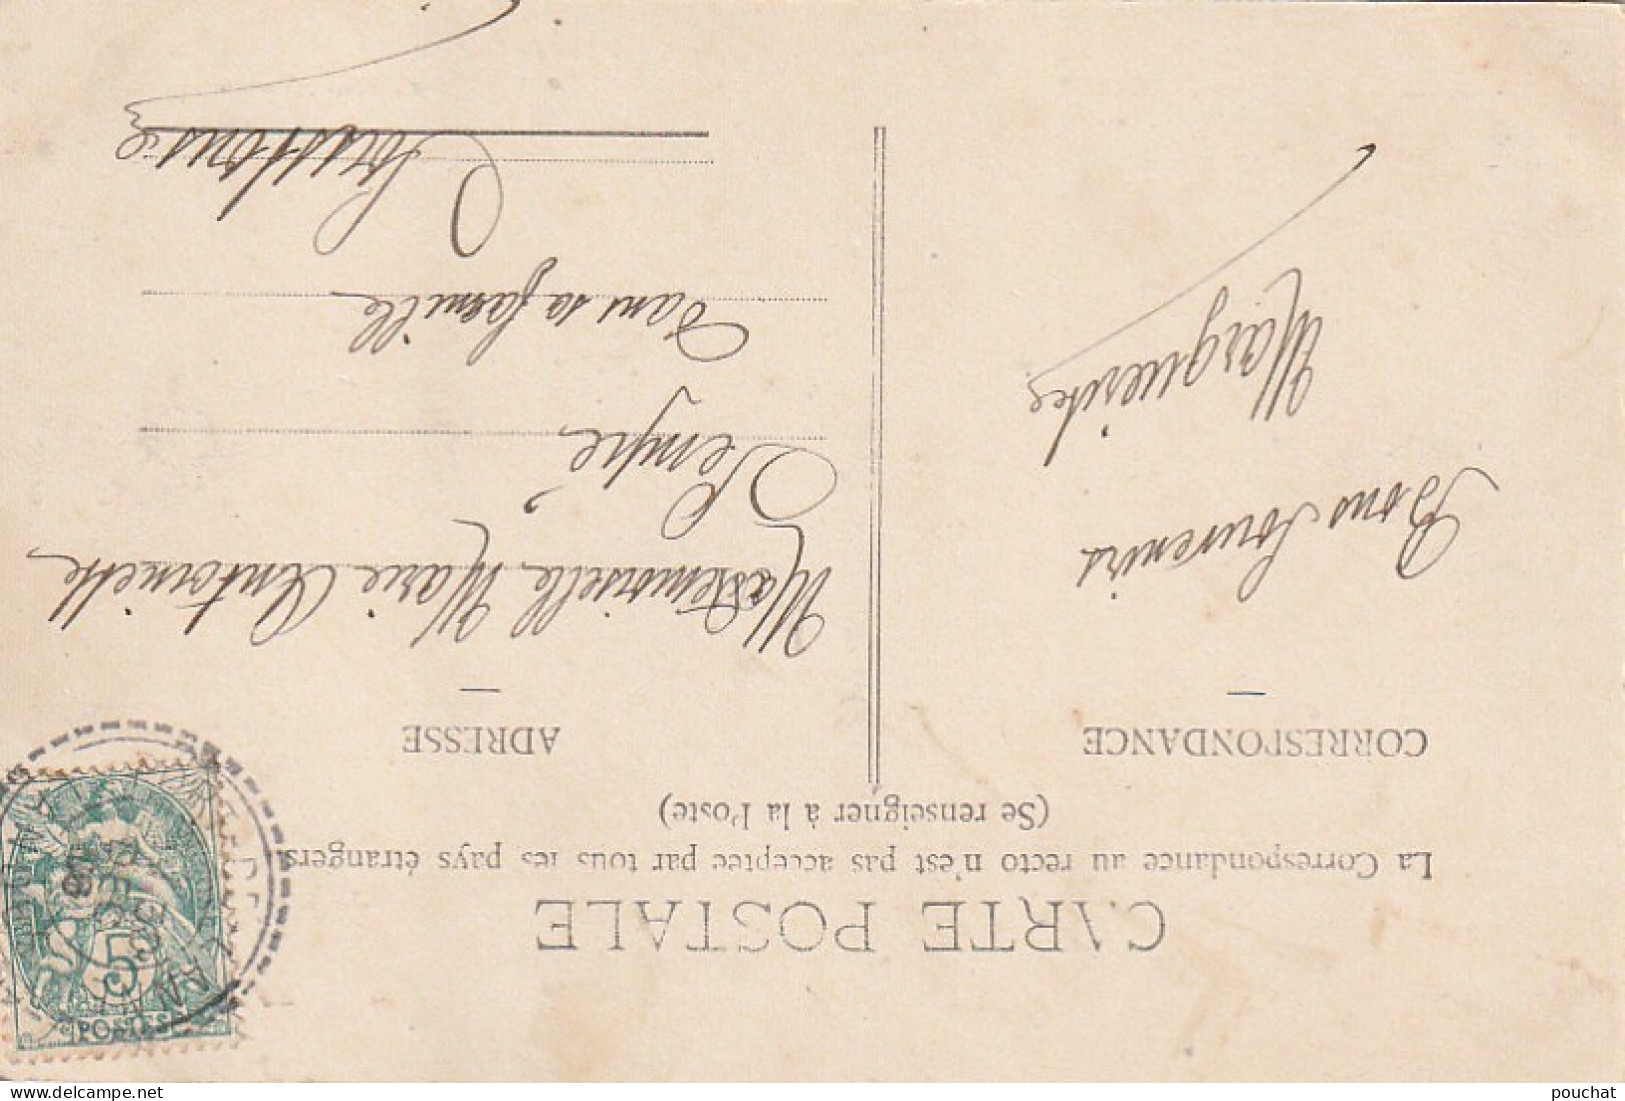 CARTE POSTALE
La Correspondance au recto n'est pas acceptée par tous les pays étrangers
(Se renseigner à la Poste)
CORRESPONDANCE
Bons Souvenirs
Marguerite
ADRESSE
Mademoiselle Marie Antoinette
Sempé
Dans sa famille
Soustons
5
POSTES
pouchat